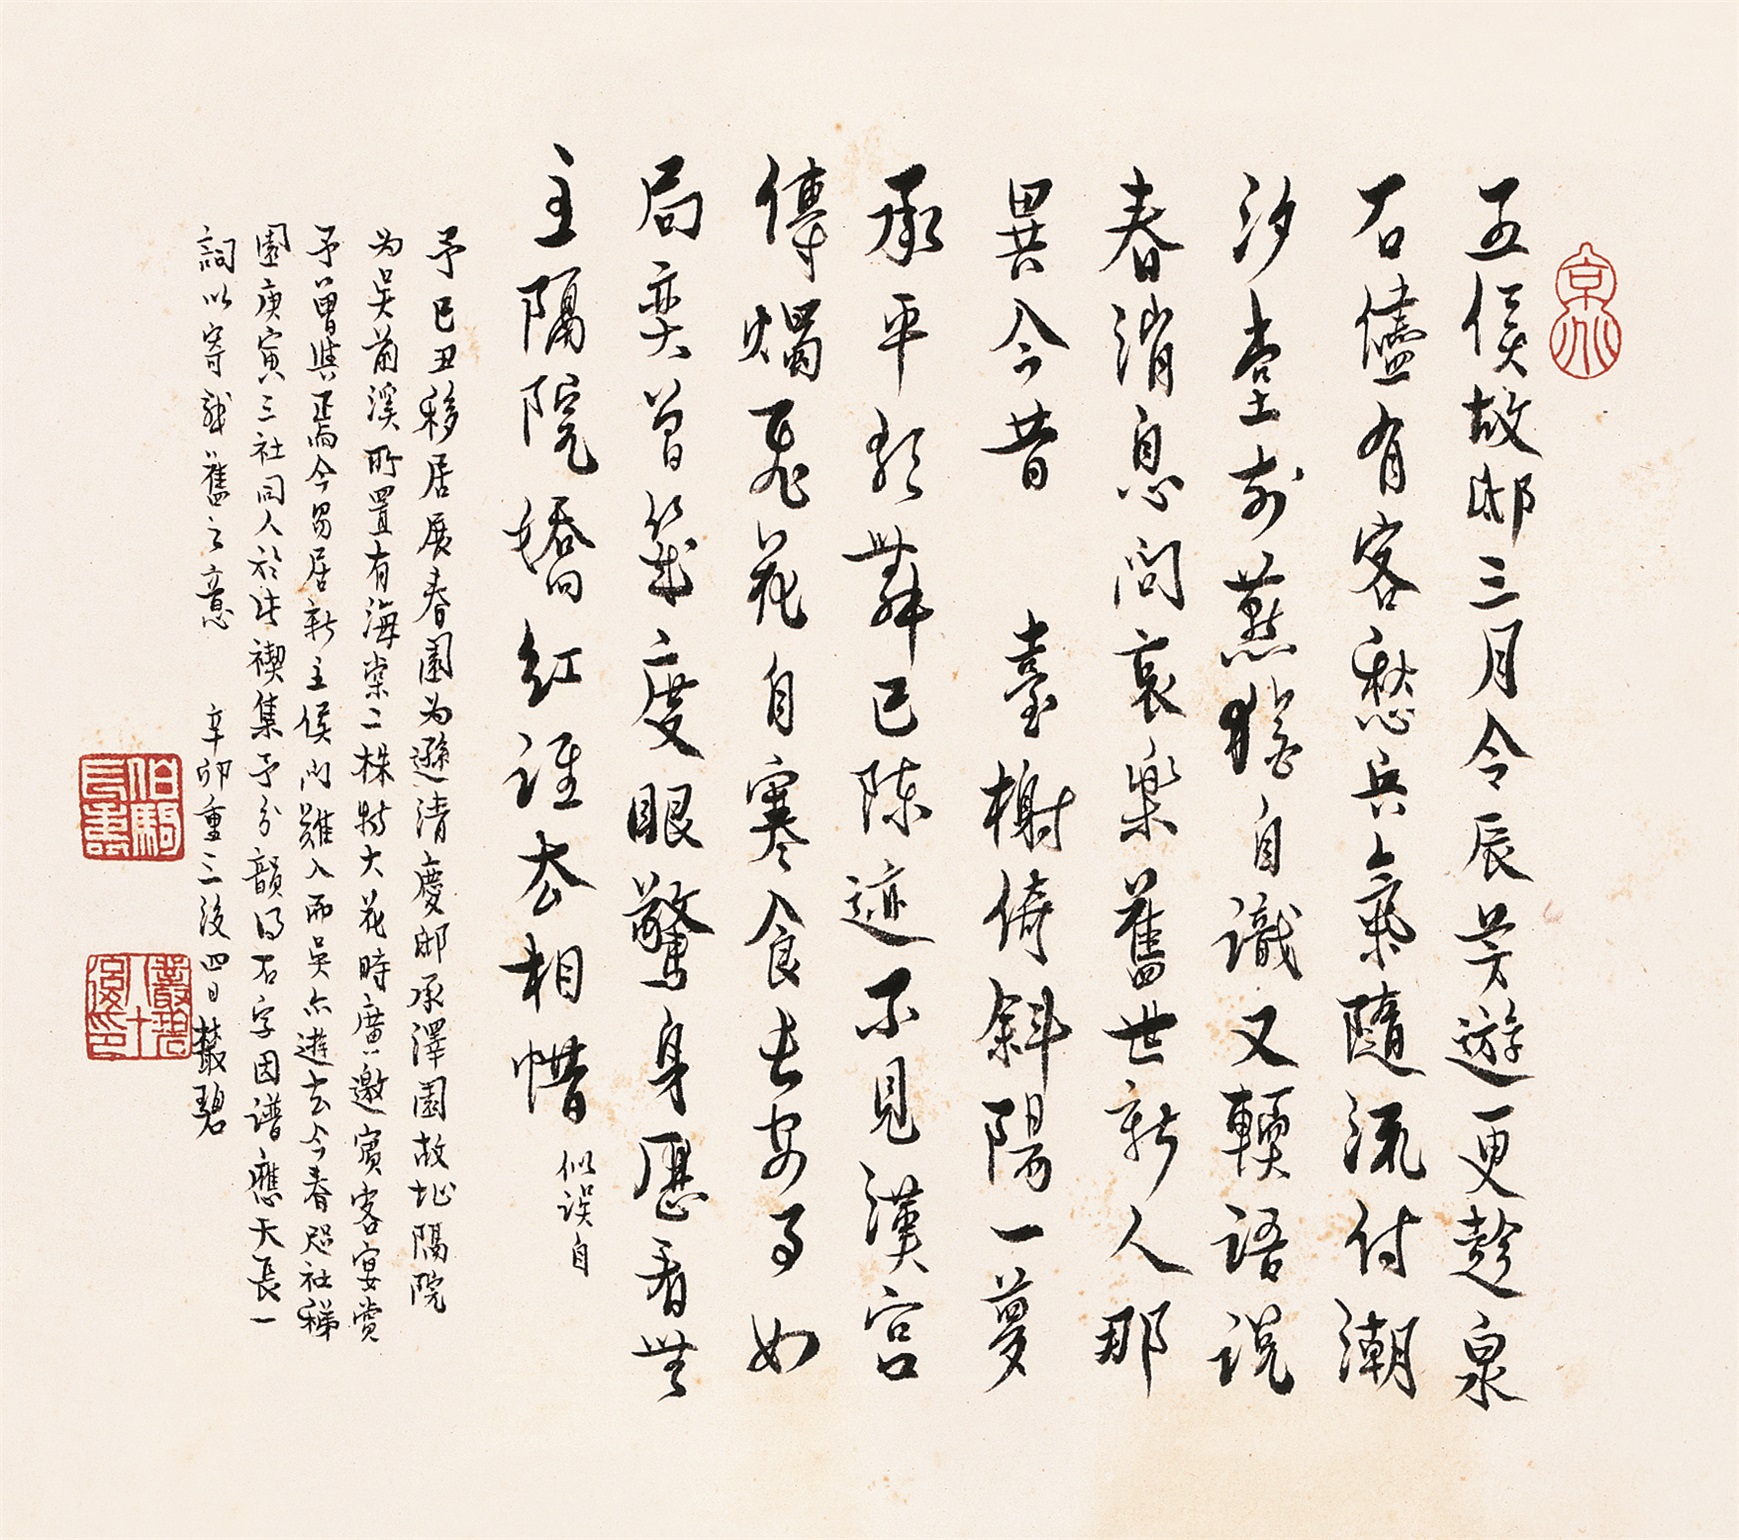 五侯故邸三月令辰芳遊更趁泉
石儘有客愁兵氣隨流付潮
汐堂前燕猶自識又輕語說
春消息問哀樂舊世新人那
異今昔　臺榭倚斜陽一夢
承平歌舞已陳迹不見漢宮
傳燭飛花自寒食長安事如
局奕曾幾度眼驚身歷看無
主隔院嬌紅誰去相惜
似誤自
予己丑移居展春園為遜清慶邸承澤園故址隔院
為吳莆溪所置有海棠二株特大花時廣邀賓客宴賞
予曾與焉今易居新主侯門難入而吳亦逝去今春咫社稊
園庚寅三社同人於此禊集予分韻得石字因譜應天長一
詞以寄感舊之意　辛卯重三後四日叢碧
京兆
伯駒
叢碧